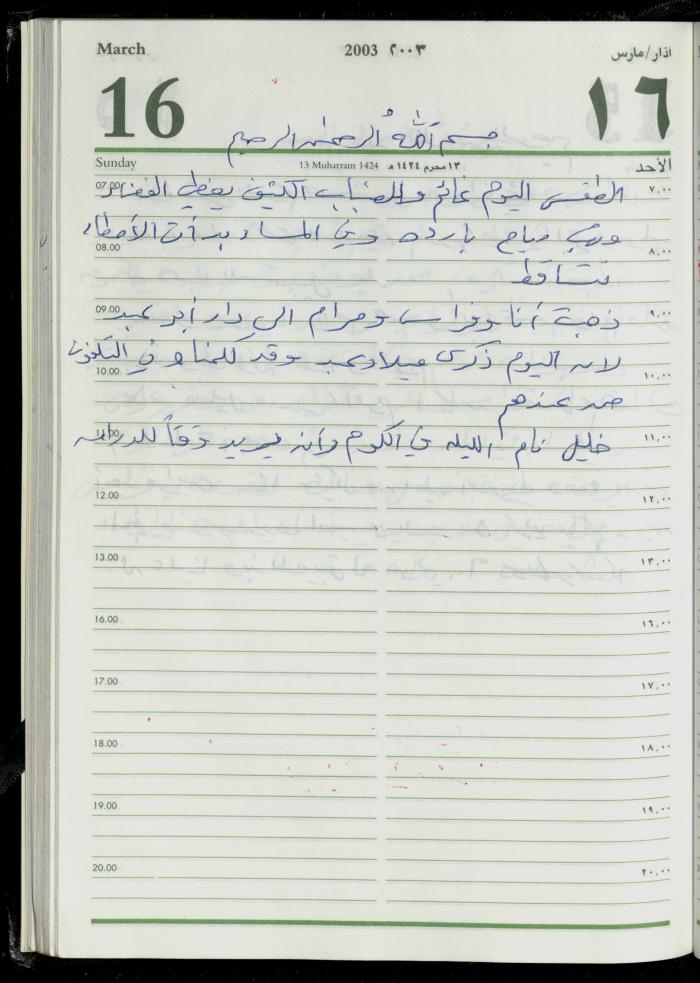 March 2003 ٢٠٠٣ اذار/مارس
16 ١٦
بسم الله الرحمن الرحيم
Sunday 13 Muharram 1424 ١٣ محرم ١٤٢٤ هـ الأحد
07.00 الطقس اليوم غائم والضباب الكثيف يغطي الفضاء ٧,٠٠
وتهب رياح بارده وفي المساء بدأت الأمطار
08.00 ٨,٠٠
تتساقط
09.00 ذهبت أنا وفراس ومرام الى دار أبو عبد ٩,٠٠
لانه اليوم ذكرى ميلاد عبد وقد كلمنا في التلفون
10.00 ١٠,٠٠
من عندهم
11.00 خليل نام الليله في الكرم وأنه يريد وقتاً للدراسه ١١,٠٠
12.00 ١٢,٠٠
13.00 ١٣,٠٠
16.00 ١٦,٠٠
17.00 ١٧,٠٠
18.00 ١٨,٠٠
19.00 ١٩,٠٠
20.00 ٢٠,٠٠